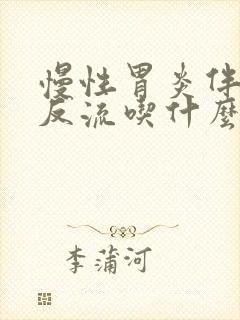 慢性胃炎伴
反流喫什麼
李蒲河